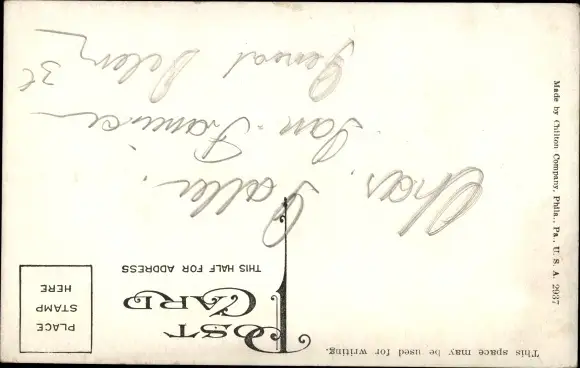 This space may be used for writing.
POST CARD
THIS HALF FOR ADDRESS
PLACE
STAMP
HERE
Chas.
San. Francisco
General
Made by Chilton Company, Phila., Pa., U. S. A. 2937